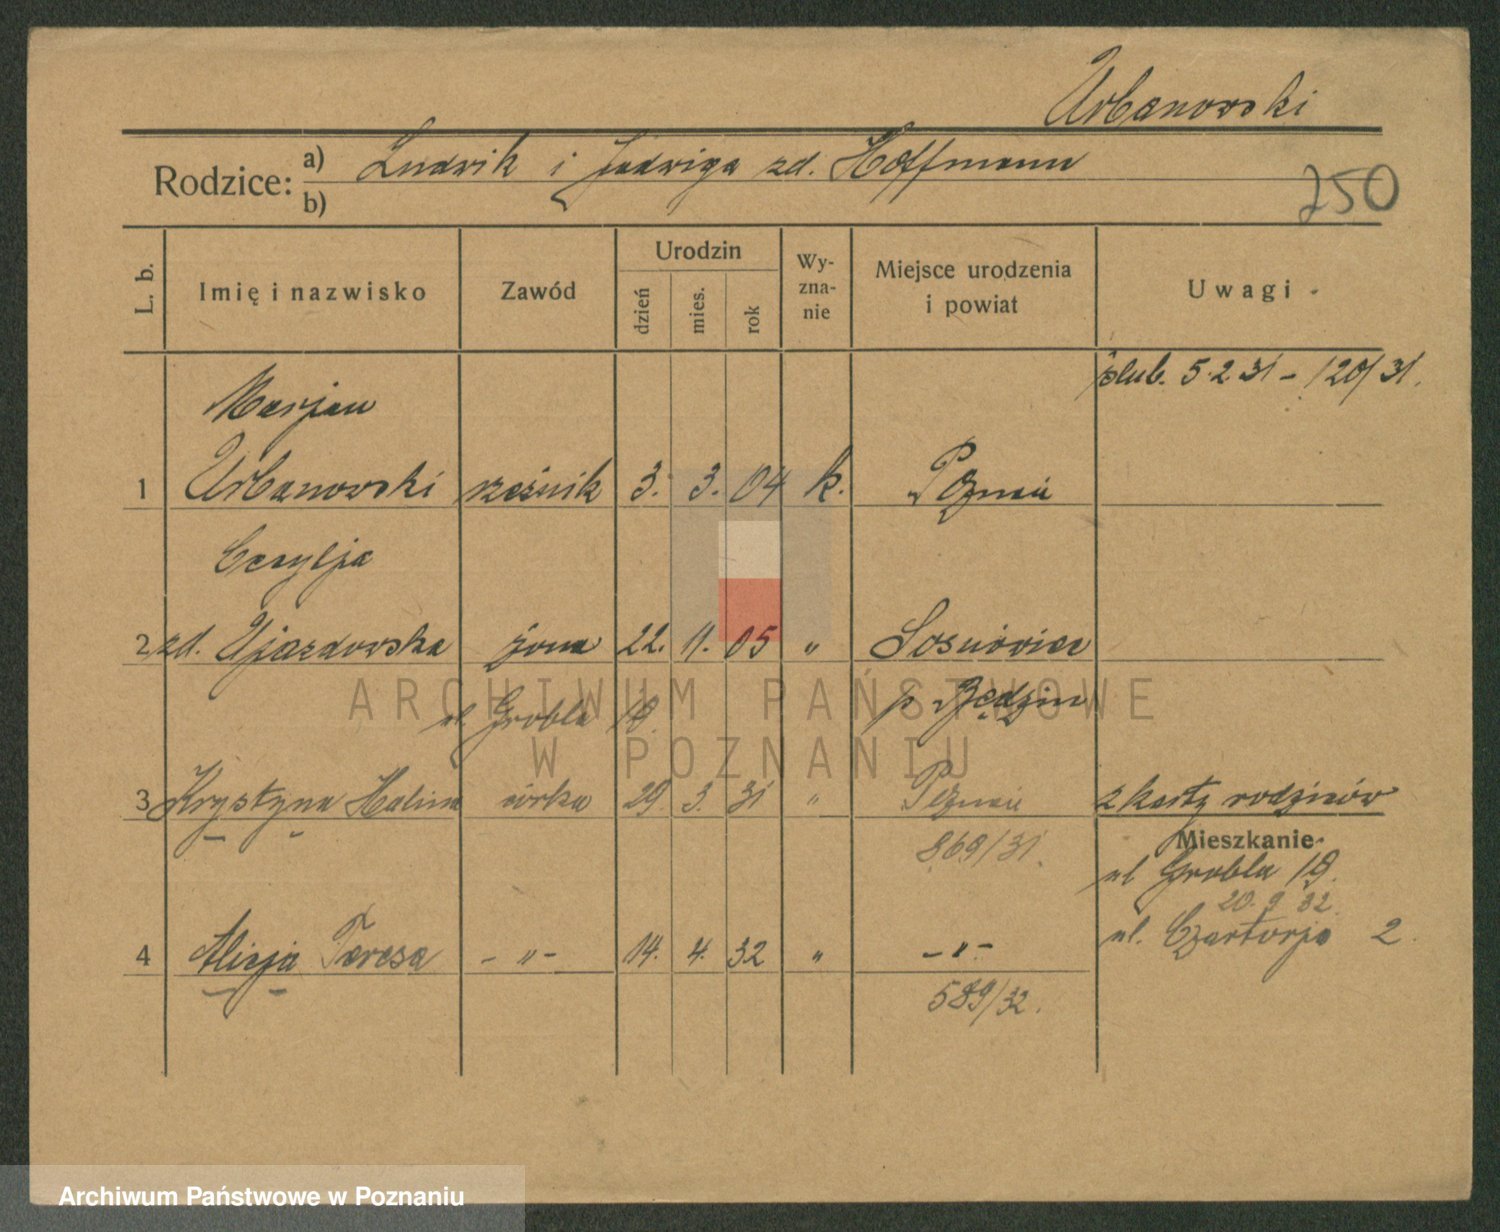 Urbanowski
Rodzice: a) Ludwik i Jadwiga zd. Hoffmann
b)
250
L. b. Imię i nazwisko Zawód Urodzin dzień mies. rok Wy-zna-nie Miejsce urodzenia i powiat Uwagi
ślub. 5.2.31 – 120/31.
Marjan
1 Urbanowski rzeźnik 3. 3. 04 k. Poznań
Cecylja
2 zd. Ujazdowska żona 22. 11. 05 " Sosnowiec
ul. Grobla 19. p. Będzin
3 Krystyna Halina córka 29. 3. 31 " Poznań z karty rodziców
869/31.
Mieszkanie
ul Grobla 19.
20. 9 32.
4 Alicja Teresa – " – 14. 4. 32 " – " – ul. Czartorja 2
589/32.
ARCHIWUM PAŃSTWOWE
W POZNANIU
Archiwum Państwowe w Poznaniu